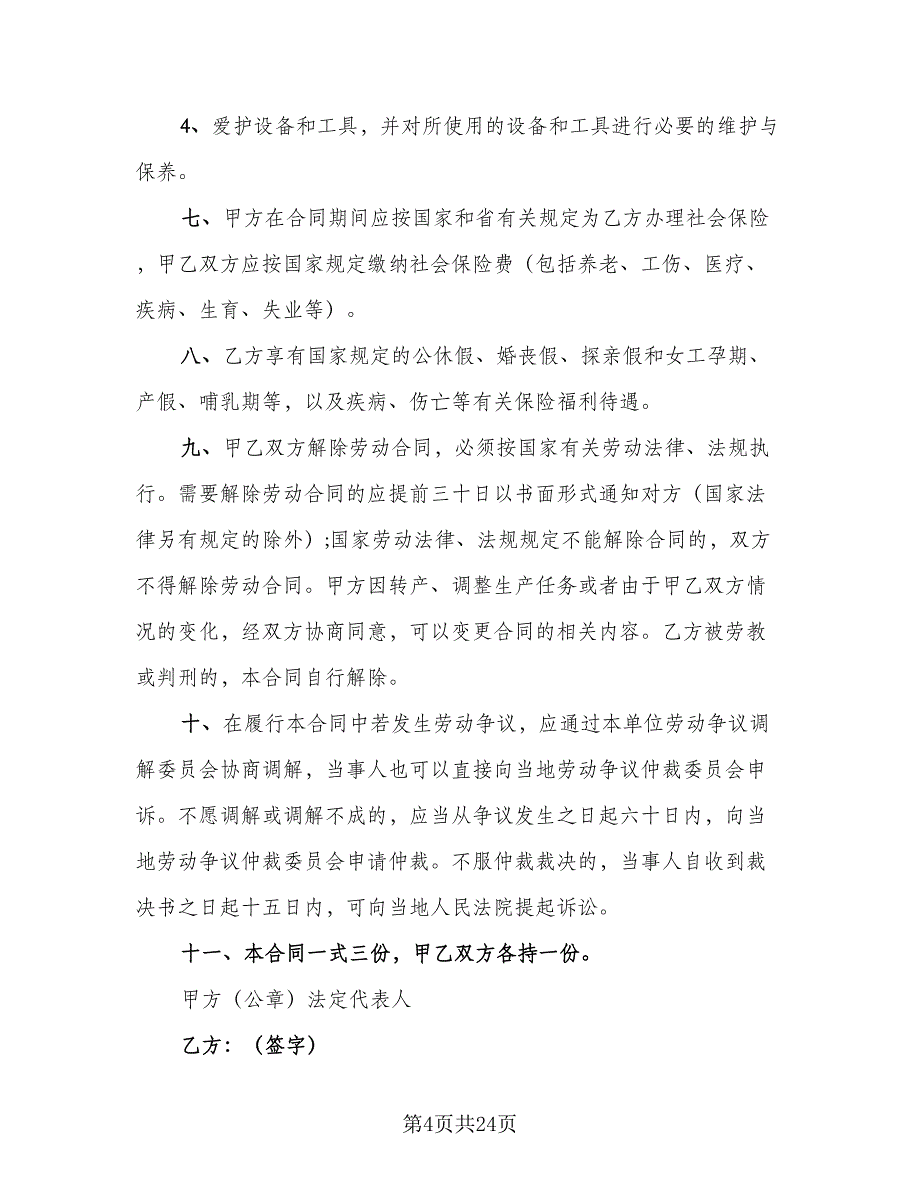 4、爱护设备和工具，并对所使用的设备和工具进行必要的维护与
保养。
七、甲方在合同期间应按国家和省有关规定为乙方办理社会保险
，甲乙双方应按国家规定缴纳社会保险费（包括养老、工伤、医疗、
疾病、生育、失业等）。
八、乙方享有国家规定的公休假、婚丧假、探亲假和女工孕期、
产假、哺乳期等，以及疾病、伤亡等有关保险福利待遇。
九、甲乙双方解除劳动合同，必须按国家有关劳动法律、法规执
行。需要解除劳动合同的应提前三十日以书面形式通知对方（国家法
律另有规定的除外）;国家劳动法律、法规规定不能解除合同的，双方
不得解除劳动合同。甲方因转产、调整生产任务或者由于甲乙双方情
况的变化，经双方协商同意，可以变更合同的相关内容。乙方被劳教
或判刑的，本合同自行解除。
十、在履行本合同中若发生劳动争议，应通过本单位劳动争议调
解委员会协商调解，当事人也可以直接向当地劳动争议仲裁委员会申
诉。不愿调解或调解不成的，应当从争议发生之日起六十日内，向当
地劳动争议仲裁委员会申请仲裁。不服仲裁裁决的，当事人自收到裁
决书之日起十五日内，可向当地人民法院提起诉讼。
十一、本合同一式三份，甲乙双方各持一份。
甲方（公章）法定代表人
乙方：（签字）
第4页共24页